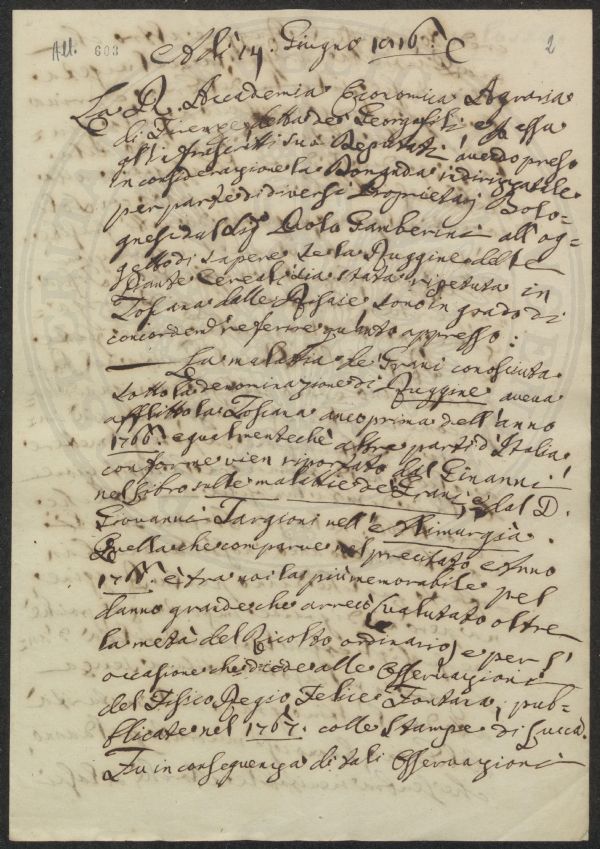 All. 603
Adì 14. Giugno 1816. 2
La R. Accademia Economica Agraria
di Firenze detta dei Georgofili e p. essa
gli infrascritti suoi Deputati avendo preso
in considerazione la Domanda indirizzatale
per parte di diversi Proprietarj Bolo-
gnesi dal Sig. Paolo Gamberini all'og-
getto di sapere se la Ruggine delle
Piante Cereali sia stata ripetuta in
Toscana dalle Risaie sono in grado di
concordem. referire quanto appresso:
La malattia de Grani conosciuta
sotto la denominazione di Ruggine aveva
afflitto la Toscana anco prima dell'anno
1766. egualmente che altre parti d'Italia
conforme vien riportato dal Ginanni
nel Libro sulle malattie de Grani, e dal D.
Giovanni Targioni nell'Alimurgia.
Quella che comparve nel precitato Anno
1766. è tra noi la più memorabile pel
danno grande che arrecò (valutato oltre
la metà del Ricolto ordinario) e per l'
occasione che diede alle Osservazioni
del Fisico Regio Felice Fontana, pub-
blicate nel 1767. colle Stampe di Lucca.
Fu in conseguenza di tali Osservazioni